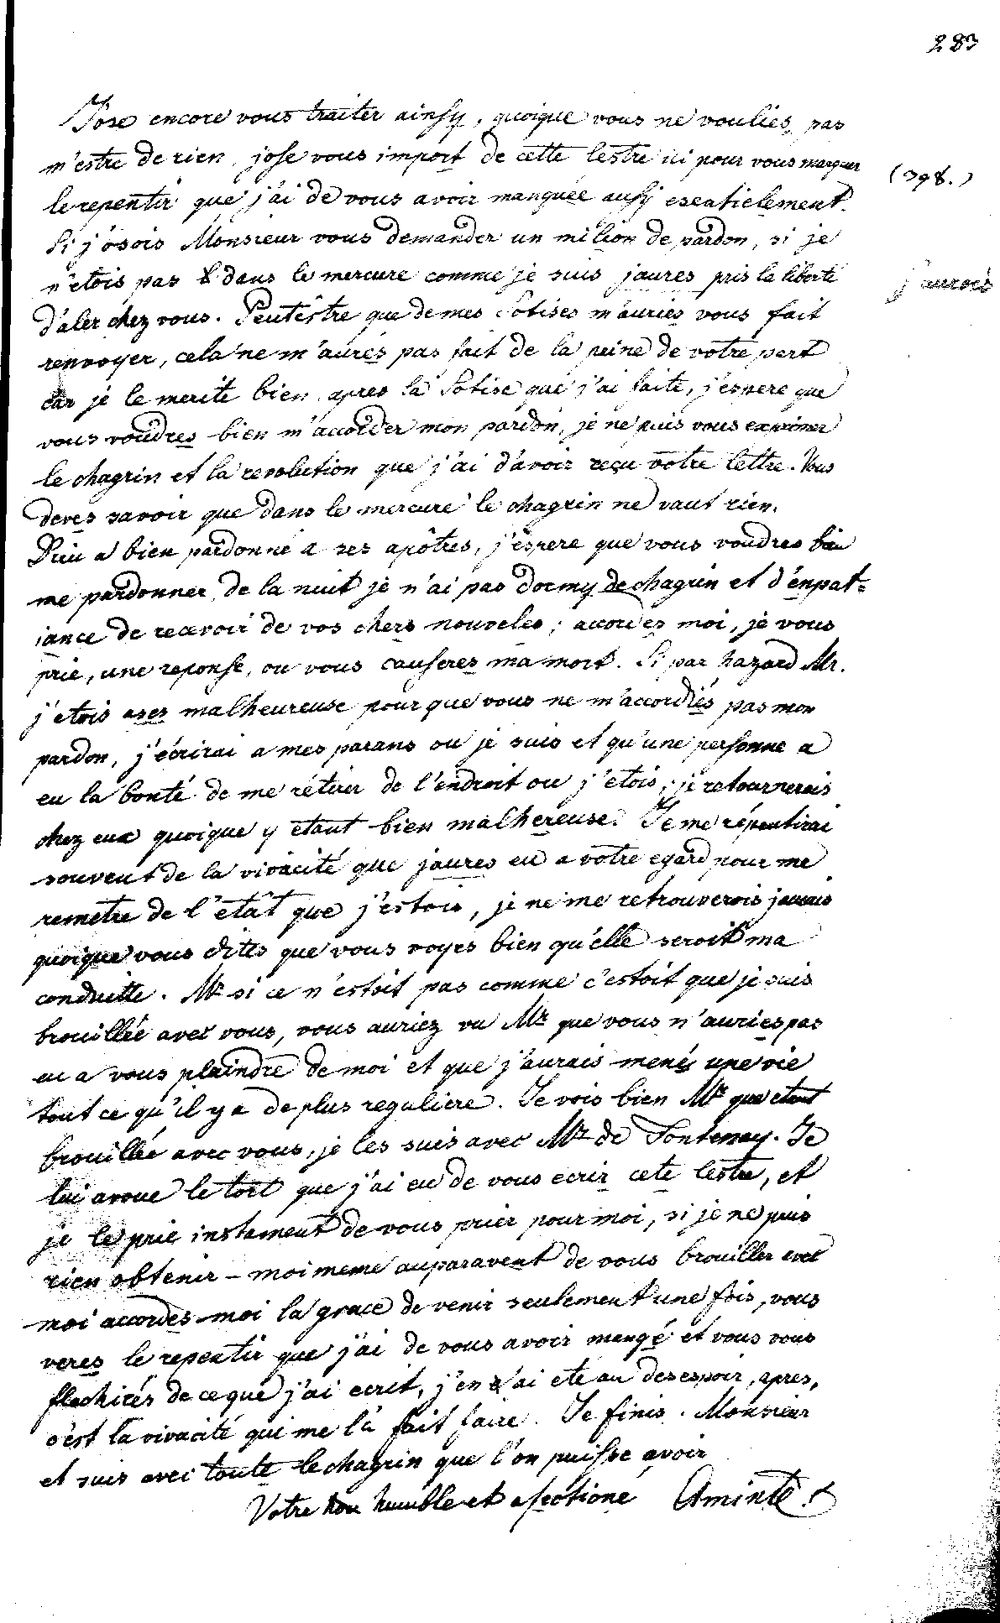 283
J'ose encore vous traiter ainsy, quoique vous ne voulies, pas
m'estre de rien, jose vous import de cette lestre ici pour vous marquer
(398.)
le repentir que j'ai de vous avoir manquée aussy esentielement.
Si j'osois Monsieur vous demander un milion de pardon, si je
n'etois pas dans le mercure comme je suis jaures pris la liberté
j'aurois
d'aler chez vous. Peutestre que de mes sotises m'auries vous fait
renvoyer, cela ne m'aures pas fait de la peine de votre part
car je le merite bien apres la sotise que j'ai faite, j'espere que
vous voudres bien m'accorder mon pardon, je ne puis vous exprimer
le chagrin et la revolution que j'ai d'avoir reçu votre lettre. Vous
deves savoir que dans le mercure le chagrin ne vaut rien.
Dieu a bien pardonné a ses apôtres, j'espere que vous voudres bien
me pardonner, de la nuit je n'ai pas dormy de chagrin et d'enpat=
iance de recevoir de vos chers nouveles; accordes moi, je vous
prie, une reponse, ou vous causeres ma mort. Si par hazard Mr.
j'etois ases malheureuse pour que vous ne m'accordiés pas mon
pardon, j'écrirai a mes parans ou je suis et qu'une personne a
eu la bonté de me rétirer de l'endroit ou j'etois; je retournerais
chez eux quoique y etant bien malhereuse. Je me répentirai
souvent de la vivacité que jaures eu a votre egard pour me
remetre de l'etat que j'estois, je ne me retrouverois jamais
quoique vous dites que vous voyes bien qu'elle seroit ma
conduitte. Mr si ce n'estoit pas comme c'estoit que je suis
brouillée avec vous, vous auriez vu Mr que vous n'auries pas
eu a vous plaindre de moi et que j'aurais menés une vie
tout ce qu'il y a de plus reguliere. Je vois bien Mr que etant
brouillée avec vous, je les suis avec Mr de Fontenay. Je
lui avoue le tort que j'ai eu de vous ecrir cete lestre, et
je le prie instament de vous prier pour moi, si je ne puis
rien obtenir - moi meme auparavent de vous brouiller avec
moi accordes-moi la grace de venir seulement une fois, vous
veres le repentir que j'ai de vous avoir mangé et vous vous
flechirés de ce que j'ai ecrit, j'en ai ete au desespoir, apres,
c'est la vivacité qui me l'a fait faire. Je finis. Monsieur
et suis avec toute le chagrin que l'on puisse avoir
Votre humble et afectioné Aminte.